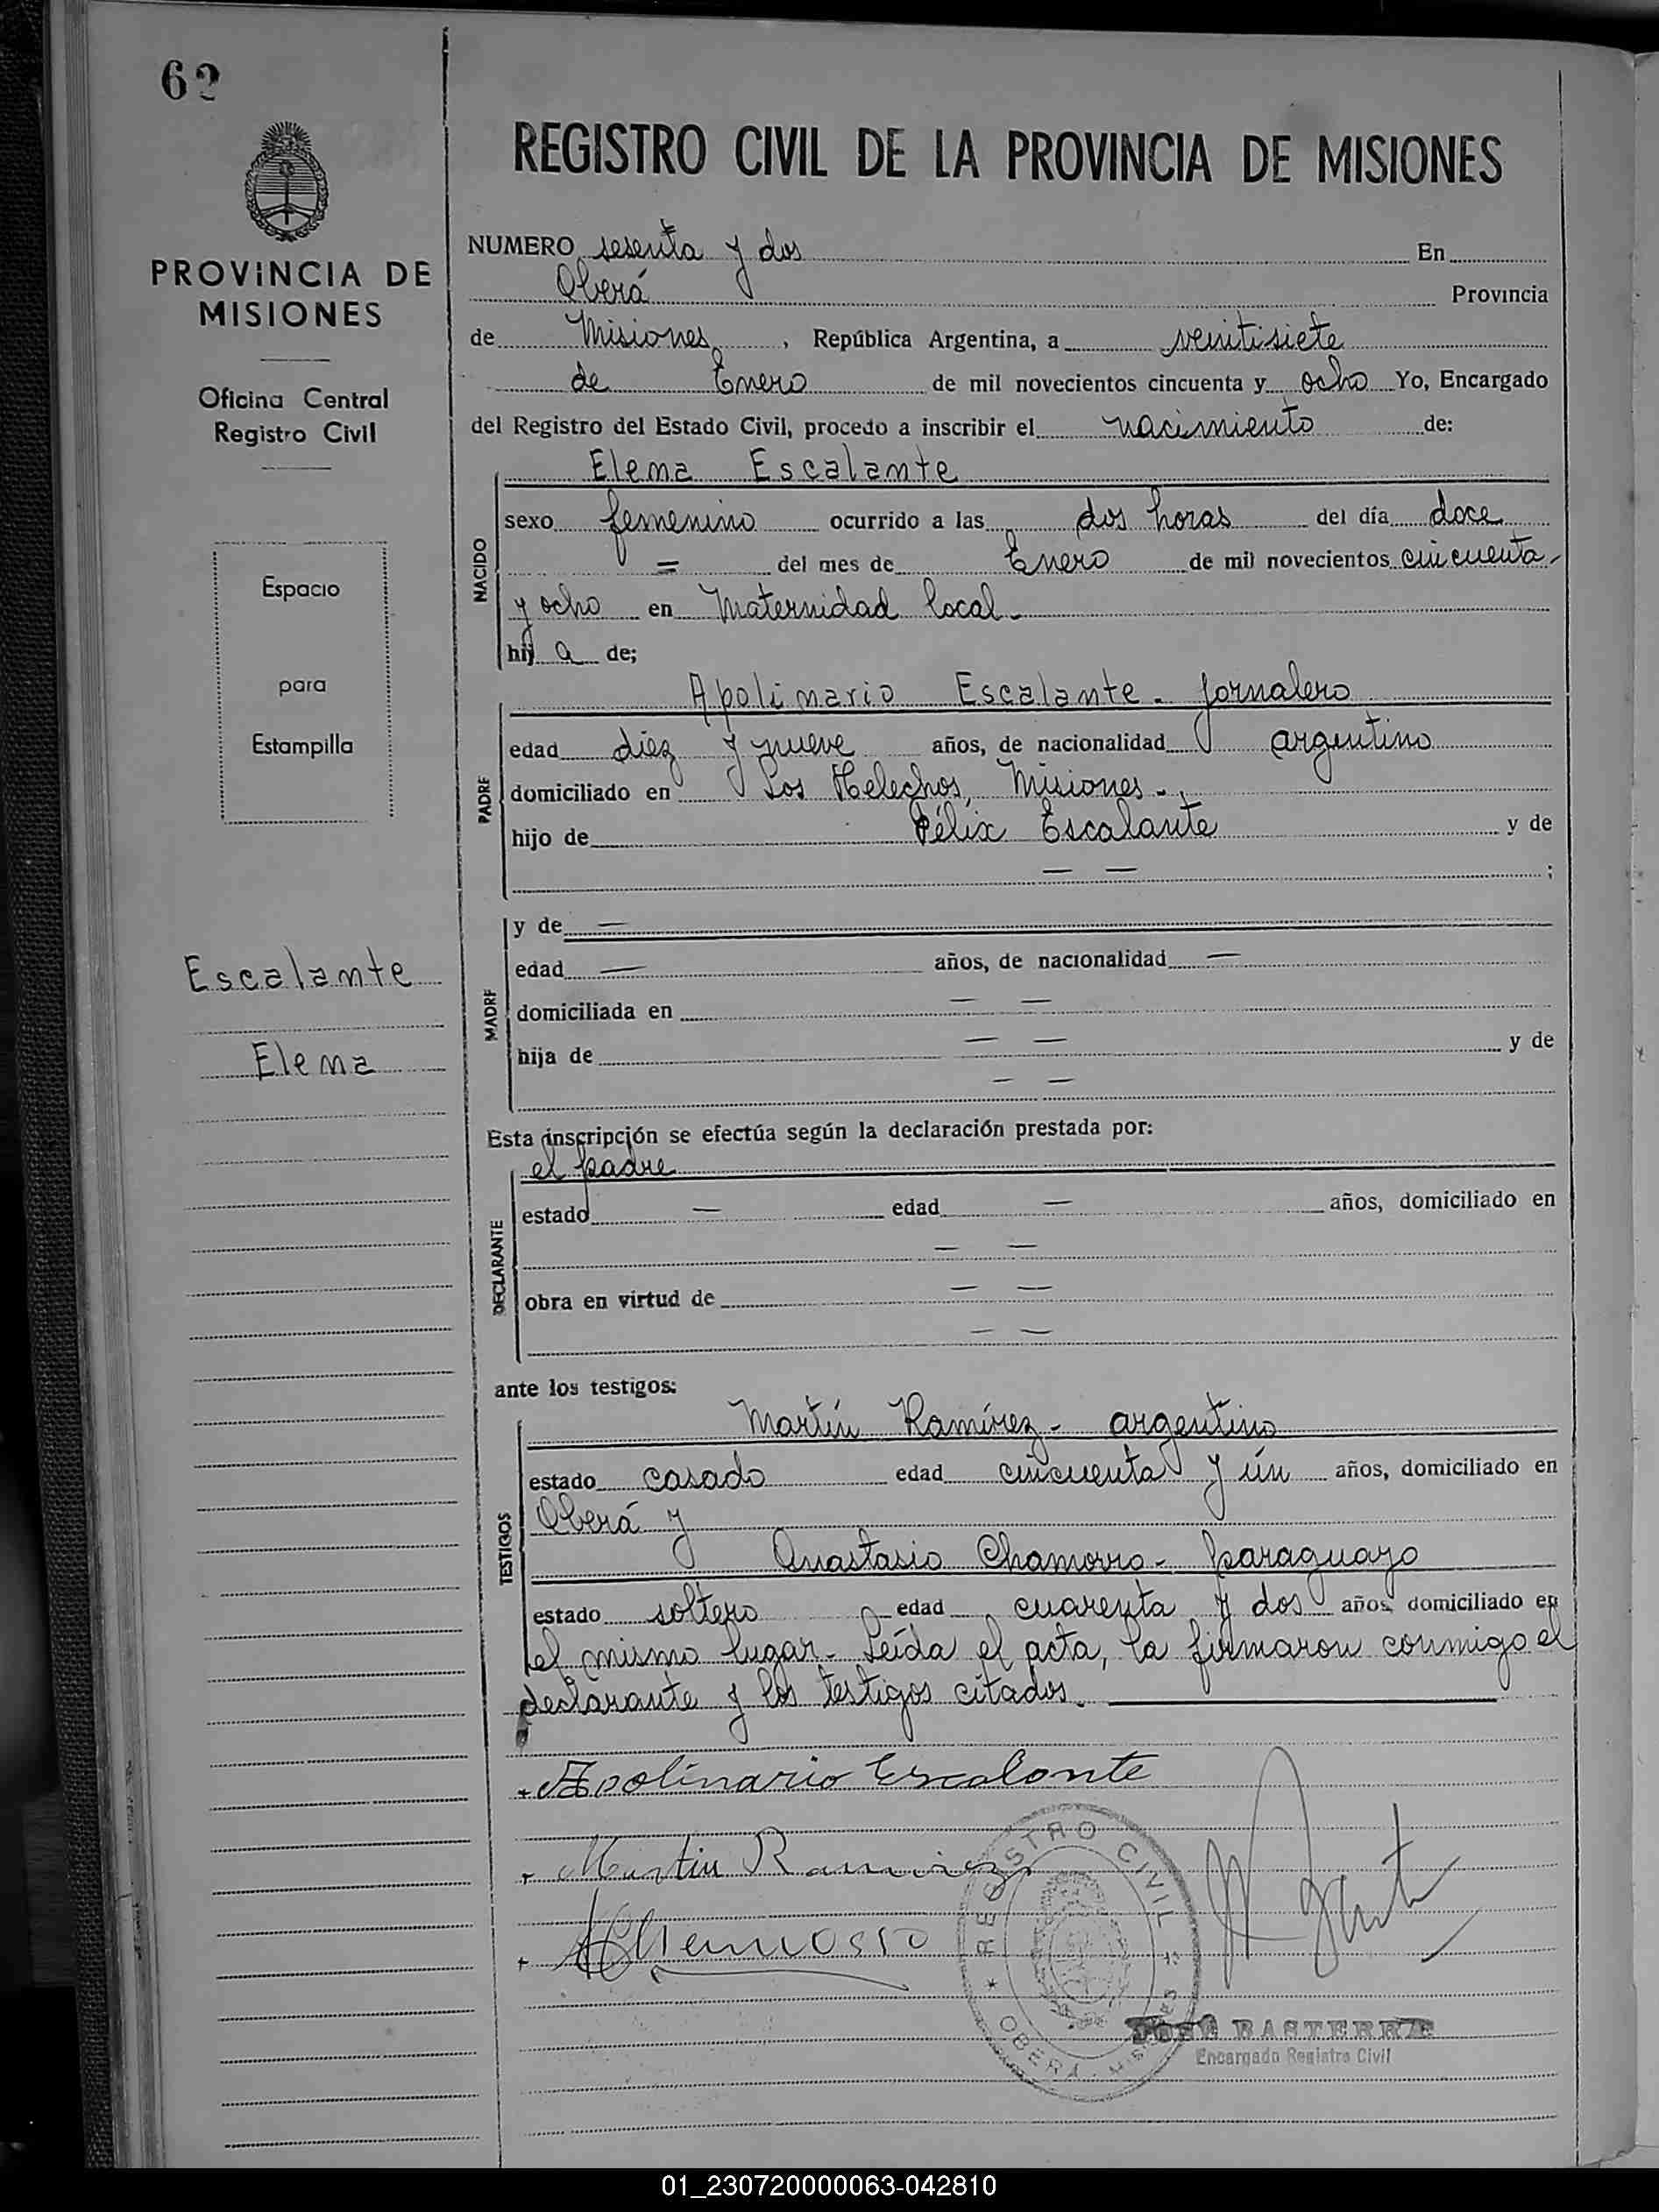 62
REGISTRO CIVIL DE LA PROVINCIA DE MISIONES
PROVINCIA DE
MISIONES
Oficina Central
Registro Civil
Espacio
para
Estampilla
Escalante
Elena
NUMERO sesenta y dos En
Oberá Provincia
de Misiones, República Argentina, a veintisiete
de Enero de mil novecientos cincuenta y ocho Yo, Encargado
del Registro del Estado Civil, procedo a inscribir el nacimiento de:
NACIDO
Elena Escalante
sexo femenino ocurrido a las dos horas del día doce
= del mes de Enero de mil novecientos cincuenta
y ocho en Maternidad local.
hij a de;
PADRE
Apolinario Escalante - jornalero
edad diez y nueve años, de nacionalidad argentino
domiciliado en Los Helechos, Misiones -
hijo de Félix Escalante y de
— — ;
MADRE
y de —
edad — años, de nacionalidad —
domiciliada en — —
hija de — — y de
— —
Esta inscripción se efectúa según la declaración prestada por:
DECLARANTE
el padre
estado — edad — años, domiciliado en
— —
obra en virtud de — —
— —
ante los testigos:
TESTIGOS
Martín Ramírez - argentino
estado casado edad cincuenta y ún años, domiciliado en
Oberá y
Anastasio Chamorro - paraguayo
estado soltero edad cuarenta y dos años domiciliado en
el mismo lugar - Leída el acta, la firmaron conmigo el
declarante y los testigos citados.
Apolinario Escalante
Martin Ramirez
REGISTRO CIVIL
OBERÁ - MISIONES
BASTERRE
Encargado Registro Civil
01_230720000063-042810